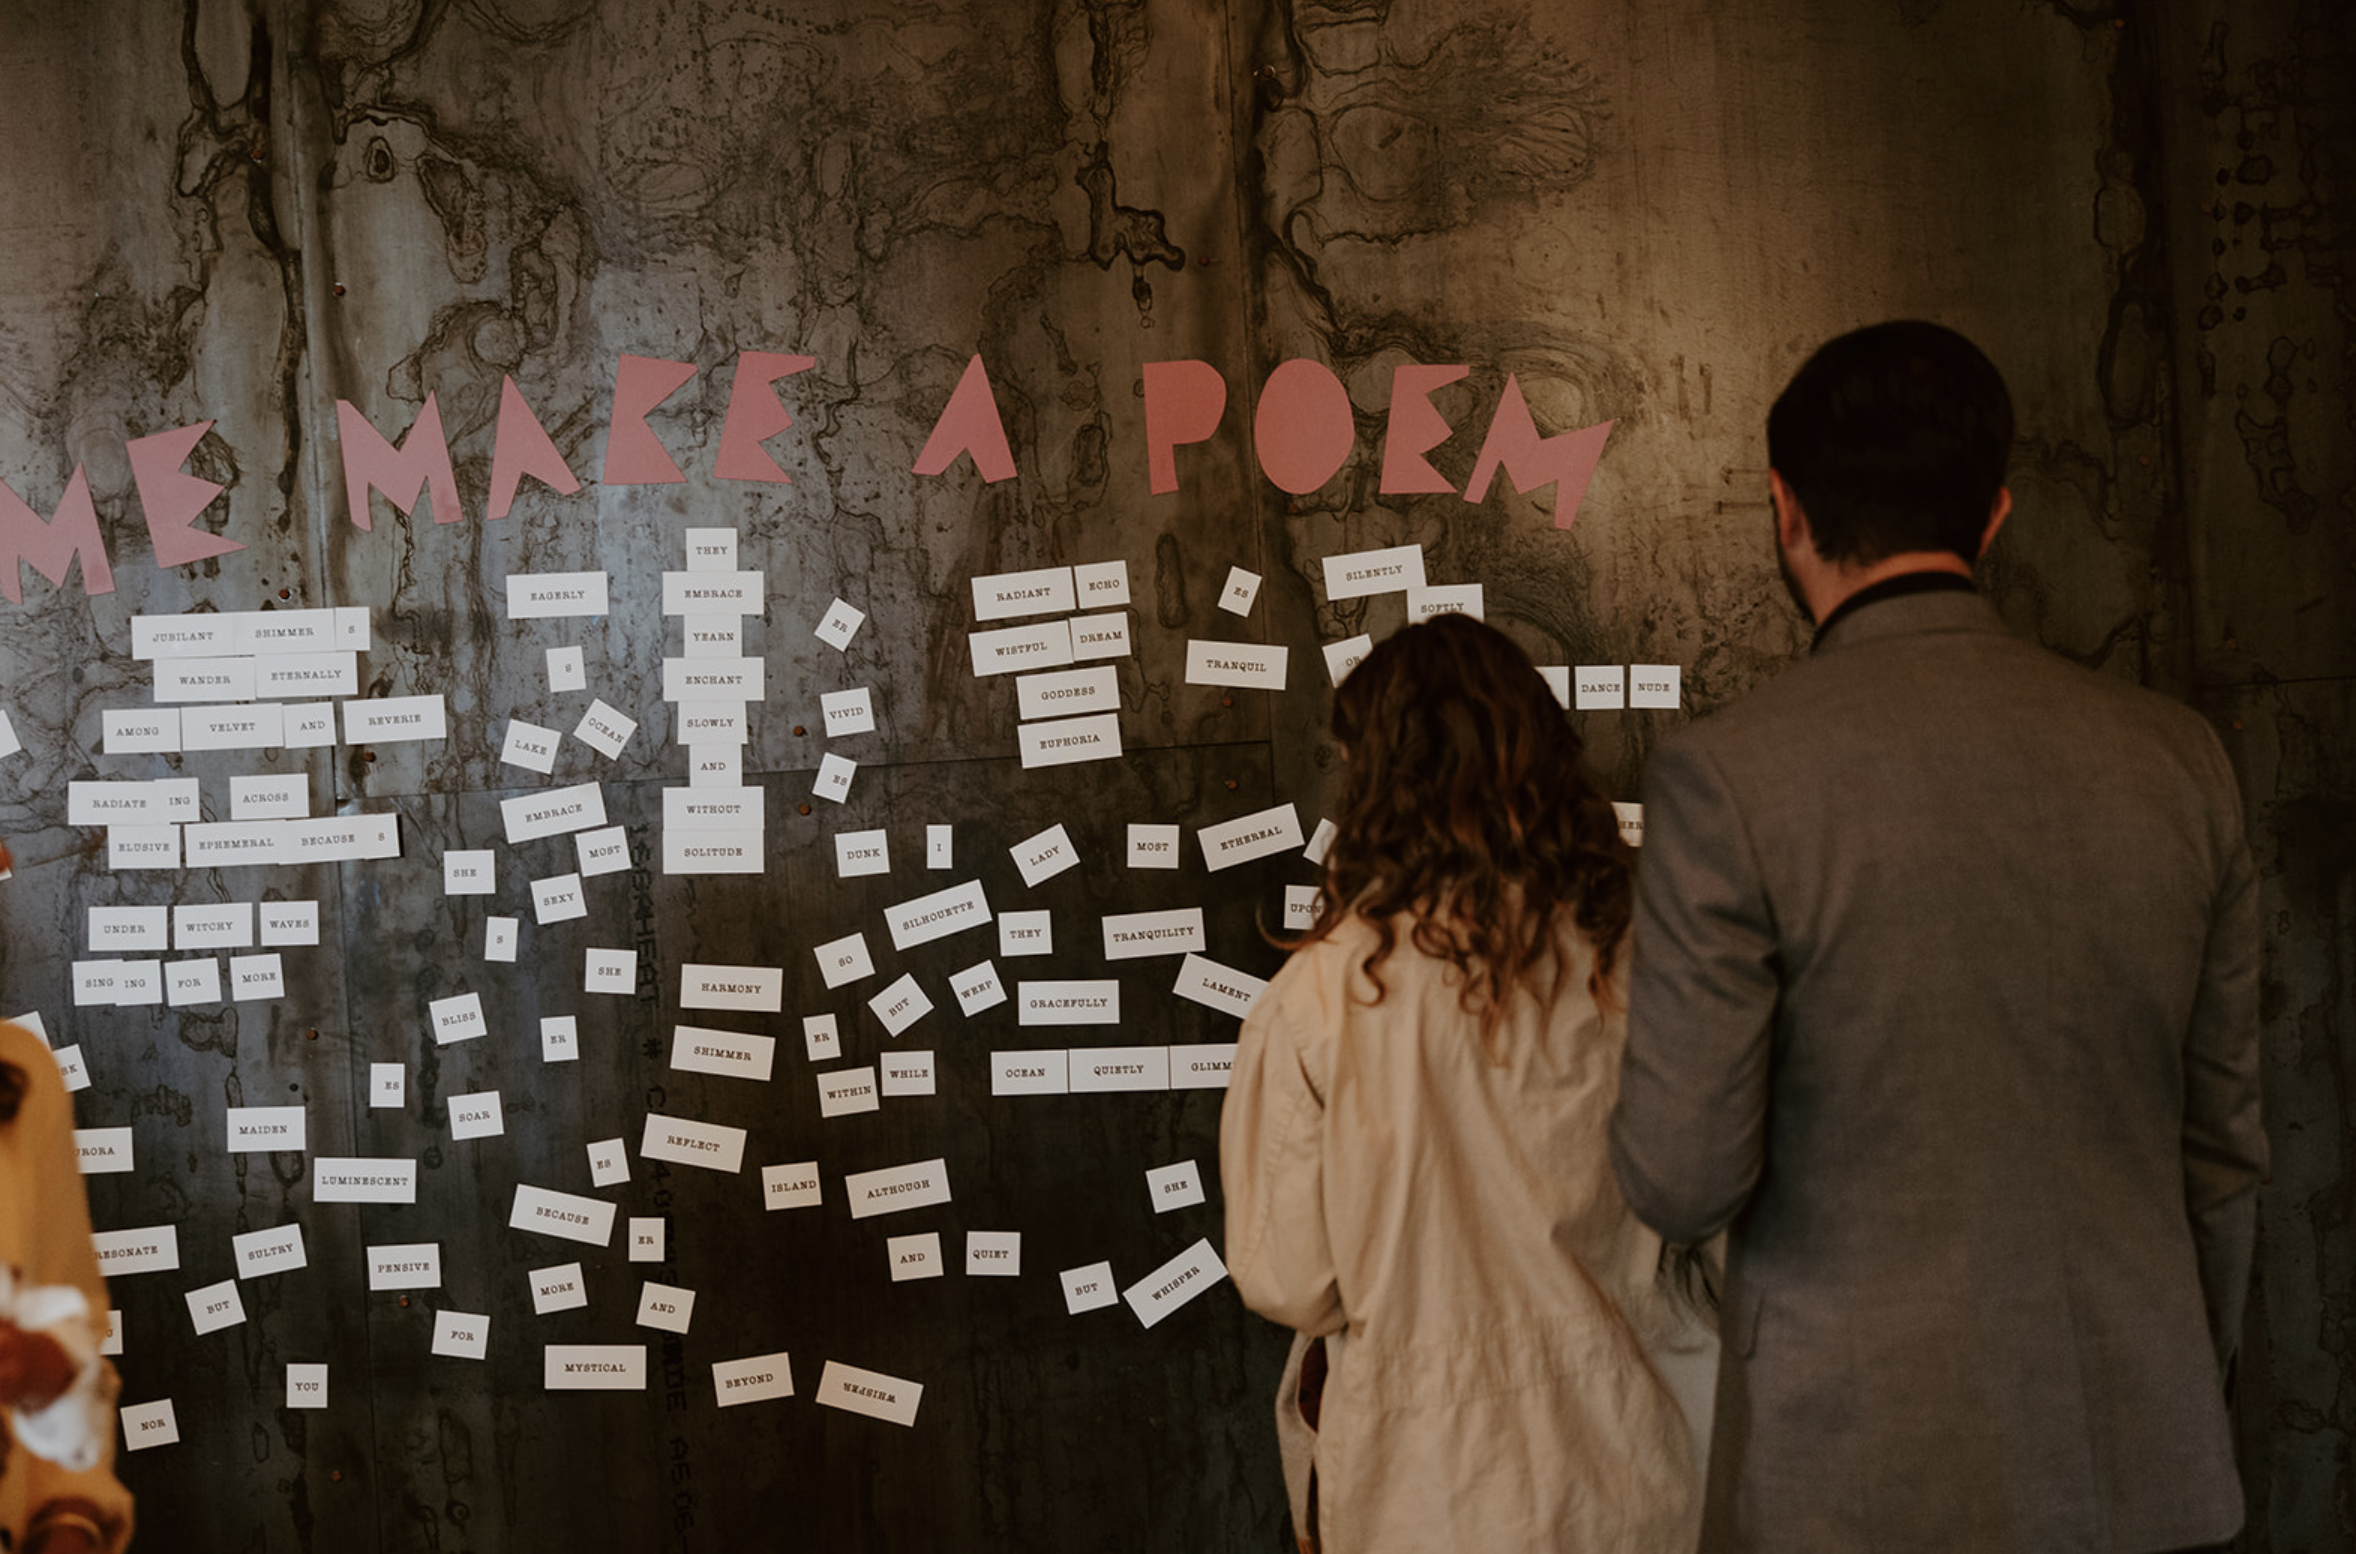 ME MAKE A POEM
THEY
EMBRACE
YEARN
ENCHANT
SLOWLY
AND
WITHOUT
SOLITUDE
JUBILANT SHIMMER S
WANDER ETERNALLY
AMONG VELVET AND REVERIE
RADIATE ING ACROSS
ELUSIVE EPHEMERAL BECAUSE S
UNDER WITCHY WAVES
SING ING FOR MORE
EAGERLY
S
LAKE OCEAN
EMBRACE
MOST
SHE
SEXY
S
SHE
BLISS
ER
ES
SOAR
MAIDEN
LUMINESCENT
ER
VIVID
ES
RADIANT ECHO
WISTFUL DREAM
GODDESS
EUPHORIA
ES
TRANQUIL
SILENTLY
SOFTLY
OR
DANCE NUDE
DUNK I LADY MOST ETHEREAL
HER
SILHOUETTE THEY TRANQUILITY
UPON
SO
BUT WEEP GRACEFULLY LAMENT
HARMONY
SHIMMER
ER
WITHIN WHILE
OCEAN QUIETLY GLIMM
REFLECT
ES
ISLAND ALTHOUGH SHE
BECAUSE
ER
AND QUIET
BUT WHISPER
RESONATE
SULTRY
PENSIVE
BUT
MORE
AND
FOR
MYSTICAL BEYOND WHISPER
YOU
NOR